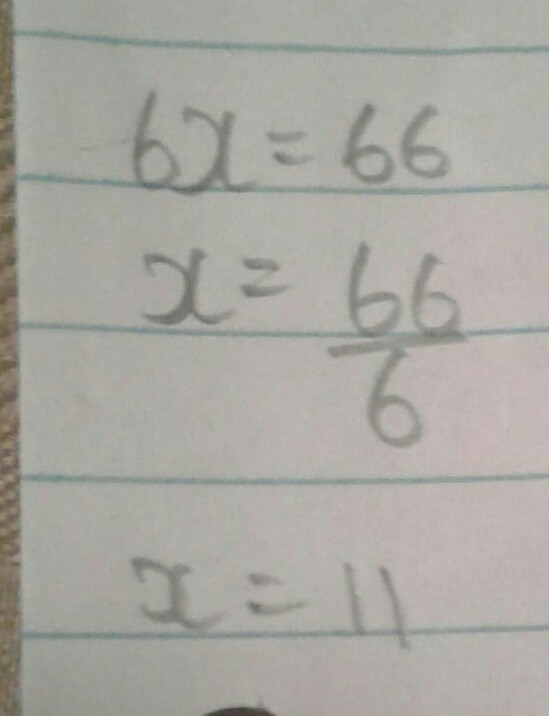 6x = 66
x = 66/6
x = 11